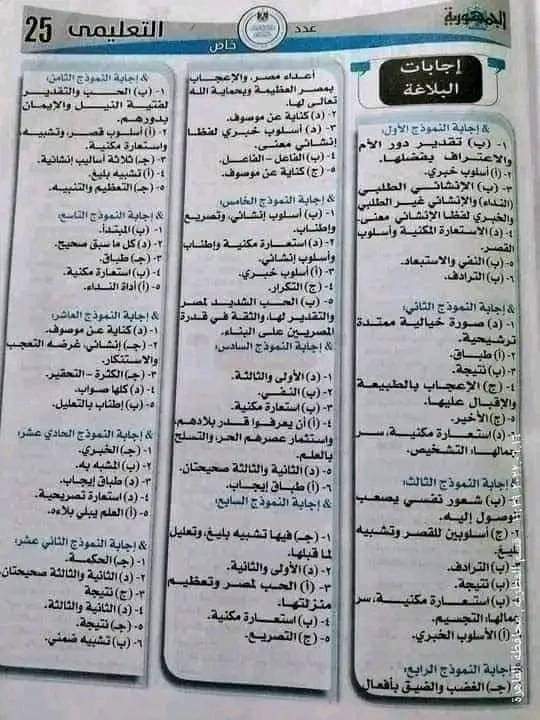 الجمهورية
عدد
خاص
التعليمى 25
إجابات
البلاغة
& إجابة النموذج الأول:
١- (ب) تقدير دور الأم
والاعتراف بفضلها.
٢- (أ) أسلوب خبري
٣- (ب) الإنشائي الطلبي
(النداء) والإنشائي غير الطلبي
والخبري لفظا الإنشائي معنى.
٤- (د) الاستعارة المكنية وأسلوب
القصر.
٥- (ب) النفي والاستبعاد.
٦- (ب) الترادف.
& إجابة النموذج الثاني:
١- (د) صورة خيالية ممتدة
ترشيحية.
٢- (أ) طباق.
٣- (ب) نتيجة.
٤- (ج) الإعجاب بالطبيعة
والإقبال عليها.
٥- (ج) الأخير.
(د) استعارة مكنية، سر
جمالها: التشخيص.
& إجابة النموذج الثالث:
(ب) شعور نفسي يصعب
الوصول إليه.
(ج) أسلوبين للقصر وتشبيه
بليغ.
(ب) الترادف.
(ب) نتيجة.
(ب) استعارة مكنية، سر
جمالها: التجسيم.
(أ) الأسلوب الخبري.
إجابة النموذج الرابع:
(جـ) الغضب والضيق بأفعال
أعداء مصر، والإعجاب
بمصر العظيمة وبحماية الله
تعالى لها.
٢- (د) كناية عن موصوف.
٣- (د) أسلوب خبري لفظا
إنشائي معنى.
٤- (ب) الفاعل - الفاعل.
٥- (ج) كناية عن موصوف.
& إجابة النموذج الخامس:
١- (ب) أسلوب إنشائي، وتصريع
وإطناب.
٢- (د) استعارة مكنية وإطناب
وأسلوب إنشائي.
٣- (أ) أسلوب خبري.
٤- (ج) التكرار.
٥- (ب) الحب الشديد لمصر
والتقدير لها، والثقة في قدرة
المصريين على البناء.
& إجابة النموذج السادس:
١- (د) الأولى والثالثة.
٢- (ب) النفي.
٣- (ب) استعارة مكنية.
٤- (أ) أن يعرفوا قدر بلادهم،
واستثمار عصرهم الحر، والتسلح
بالعلم.
٥- (د) الثانية والثالثة صحيحتان.
٦- (أ) طباق إيجاب.
& إجابة النموذج السابع:
١- (جـ) فيها تشبيه بليغ، وتعليل
لما قبلها.
٢- (د) الأولى والثانية.
٣- (أ) الحب لمصر وتعظيم
منزلتها.
٤- (ب) استعارة مكنية.
٥- (ج) التصريع.
& إجابة النموذج الثامن:
١- (ب) الحب والتقدير
لفتية النيل والإيمان
بدورهم.
٢- (أ) أسلوب قصر، وتشبيه،
واستعارة مكنية.
٣- (جـ) ثلاثة أساليب إنشائية.
٤- (أ) تشبيه بليغ
٥- (جـ) التعظيم والتنبيه.
& إجابة النموذج التاسع:
١- (ب) المبتدأ.
٢- (د) كل ما سبق صحيح.
٣- (جـ) طباق.
٤- (ب) استعارة مكنية.
٥- (أ) أداة النداء.
& إجابة النموذج العاشر:
١- (د) كناية عن موصوف.
٢- (جـ) إنشائي، غرضه التعجب
والاستنكار.
٣- (جـ) الكثرة - التحقير.
٤- (د) كلها صواب.
٥- (ب) إطناب بالتعليل.
& إجابة النموذج الحادي عشر:
١- (جـ) الخبري.
٢- (ب) المشبه به.
٣- (د) طباق إيجاب.
٤- (د) استعارة تصريحية.
٥- (أ) العلم يبلي بلاءه.
& إجابة النموذج الثاني عشر:
١- (جـ) الحكمة.
٢- (د) الثانية والثالثة صحيحتان.
٣- (ج) نتيجة
٤- (د) الثانية والثالثة.
٥- (جـ) نتيجة.
٦- (ب) تشبيه ضمني.
محافظة القاهرة